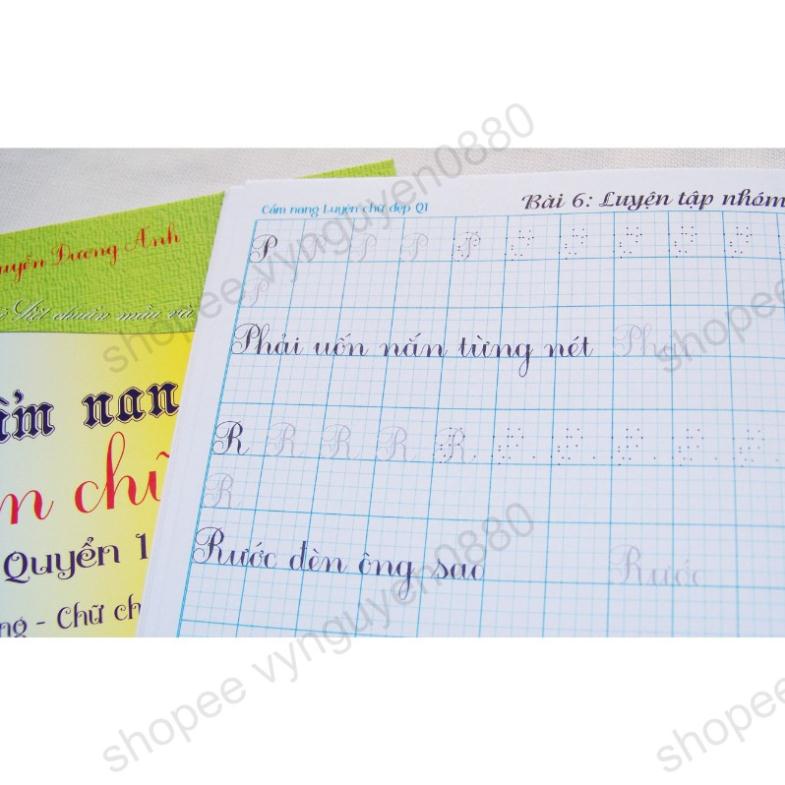 Cẩm nang Luyện chữ đẹp Q1
Bài 6: Luyện tập nhóm
P P P P P
P
Phải uốn nắn từng nét Phả
R R R R R
R
Rước đèn ông sao Rước
Dương Anh
chuẩn mẫu và
nan
chữ
Quyển 1
- Chữ
shopee vynguyen0880
shopee vynguyen0880
shopee vynguyen0880
shopee
shopee